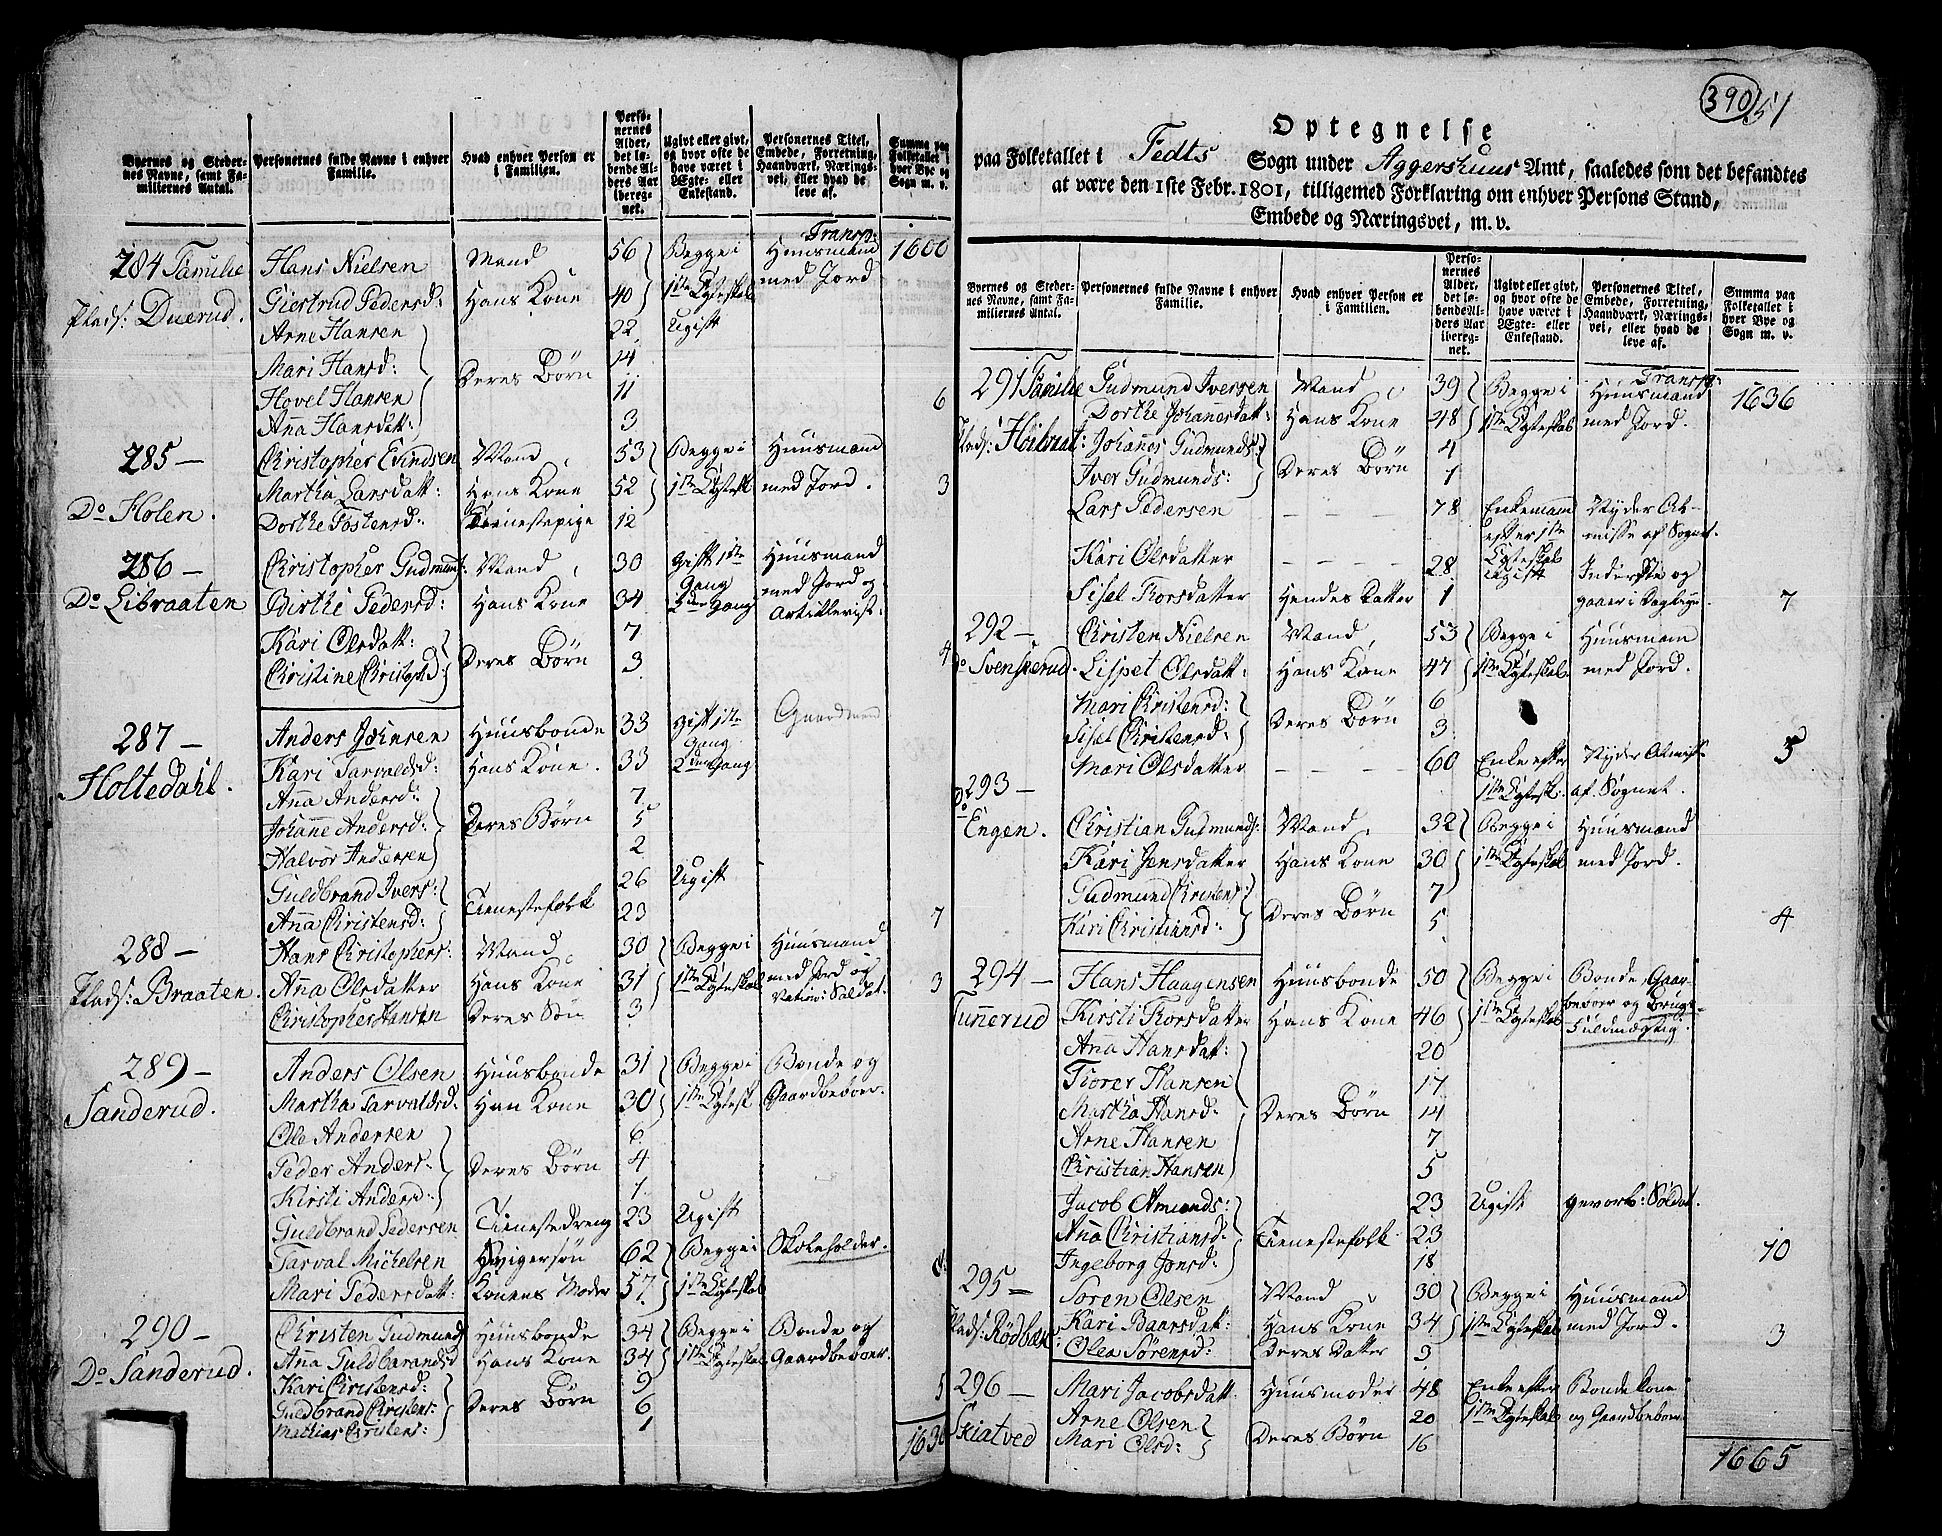 390 51
Byernes og Steder-
nes Navne, samt Fa-
miliernes Antal.
Personernes fulde Navne i enhver
Familie.
Hvad enhver Person er
i Familien.
Perso-
nernes
Alder,
det lø-
bende Al-
ders Aar
iberegnet.
Ugivt eller givt,
og hvor ofte de
have været i
Ægte- eller
Enkestand.
Personernes Titel,
Embede, Forretning,
Haandværk, Nærings-
vei, eller hvad de
leve af.
Summa paa
Folketallet i
hver Bye og
Sogn m. v.
Transp: 1600
284 Familie Hans Nielsen Mand 56 Begge i Huusmand
Plads: Duerud. Giertrud Pedersd: Hans Kone 40 1ste Egteskab med Jord
Arne Hansen 22 Ugift
Mari Hansd: Deres Børn 14
Hovel Hansen 11
Anna Hansdatt: 3 6
285 — Christopher Evindsen Mand 53 Begge i Huusmand
Do Holen. Martha Larsdatt: Hans Kone 52 1ste Egtesk med Jord. 3
Dorthe Tostensd: Tienestepige 12
286 — Christopher Gudmunds: Mand 30 Gift 1ste Gang Huusmand
Do Libraaten Birthe Pedersd: Hans Kone 34 2den Gang med Jord og Artillerist.
Kari Olsdatt: Deres Børn 7
Christine Christophd: 3 4
287 — Anders Johnsen Huusbonde 33 Gift 1ste Gang Gaardmand
Holtedahl. Kari Tarvaldsd: Hans Kone. 33 2den Gang
Anna Andersd: 7
Johanne Andersd: Deres Børn 5
Halvor Andersen 2
Guldbrand Ivers: Tienestefolk 26 Ugift
Anna Christensd: 23 7
288 — Hans Christophers: Mand 30 Begge i Huusmand
Plads: Braaten. Ana Olsdatter Hans Kone 31 1ste Egteskab med Jord og 3
Christopher Hansen Deres Søn 3 Nation: Soldat.
289 — Anders Olsen Huusbonde 31 Begge i Bonde og
Sanderud. Martha Tarvaldsd: Han Kone 30 1ste Egtesk Gaardbeboer.
Ole Andersen 6
Peder Anders: Deres Børn 4
Kirsti Andersd: 1
Guldbrand Pedersen Tienestedreng 23 Ugift
Tarval Michelsen 62 Begge i Skoleholder.
Mari Pedersdatt: Konens Moder 57 1ste Egteskab 8
290 — Christen Gudmunds Huusbonde 34 Begge i Bonde og
Do Sanderud. Anna Guldbrandsd Hans Kone 34 1ste Egteskab Gaardbeboer
Kari Christensd: Deres Børn 9
Guldbrand Christens: 6 5
Mathias Christens: 1
1636
Optegnelse
paa Folketallet i Fedts Sogn under Aggershuus Amt, saaledes som det befandtes
at være den 1ste Febr. 1801, tilligemed Forklaring om enhver Persons Stand,
Embede og Næringsvei, m. v.
Byernes og Steder-
nes Navne, samt Fa-
miliernes Antal.
Personernes fulde Navne i enhver
Familie.
Hvad enhver Person er
i Familien.
Perso-
nernes
Alder,
det lø-
bende Al-
ders Aar
iberegnet.
Ugivt eller givt,
og hvor ofte de
have været i
Ægte- eller
Enkestand.
Personernes Titel,
Embede, Forretning,
Haandværk, Nærings-
vei, eller hvad de
leve af.
Summa paa
Folketallet i
hver Bye og
Sogn m. v.
Transp: 1636
291 Familie Gudmund Iversen Mand 39 Begge i Huusmand
Plads: Høibraat: Dorthe Johanesdatt: Hans Kone 48 1ste Egteskab med Jord.
Johannes Gudmunds: Deres Børn 4
Iver Gudmunds: 1
Lars Pedersen — — — 78 Enkemann efter 1ste Egteskab Nyder Al-
misse af Sognet.
Kari Olsdatter — — — 28 ugift Inderste og
Sisel Thorsdatter Hendes Datter 1 gaaer i Dagleye. 7
292 — Christen Nielsen Mand 53 Begge i Huusmann
Do Svenskerud. Lispet Olsdatt: Hans Kone 47 1ste Egteskab med Jord.
Mari Christensd: Deres Børn 6
Sisel Christensd: 3
Mari Olsdatter — — — 60 Enke efter Nyder Almiss 5
1ste Egtesk: af Sognet.
293 —
Do Engen. Christian Gudmunds: Mand 32 Begge i Huusmand
Kari Jensdatter Hans Kone 30 1ste Egteskab med Jord.
Gudmund Christens: Deres Børn 7
Kari Christiansd: 5 4
294 — Hans Haagensen Huusbonde 50 Begge i Bonde, Gaar-
Tunnerud Kirsti Thorsdatter Hans Kone 46 1ste Egteskab beboer og Brugs
Fuldmægtig.
Ana Hansdatt: 20
Tiorer Hansen 17
Martha Hansd: Deres Børn 14
Arne Hansen 7
Christian Hansen 5
Jacob Amunds: 23 Ugift gevorb: Soldat.
Anna Christiansd: Tienestefolk 23
Ingeborg Jonsd: 18 10
295 — Søren Olsen Mand 30 Begge i Huusmand
Plads: Rødbæk: Kari Baarsdatt: Hans Kone 34 1ste Egteskab med Jord. 3
Olea Sørensd: Deres Datter 3
296 — Mari Jacobsdatt. Huusmoder 48 Enke efter Bondekone
Skiatved Arne Olsen Deres Børn 20 1ste Egteskab og Gaardbeboer
Mari Olsd: 16
1665